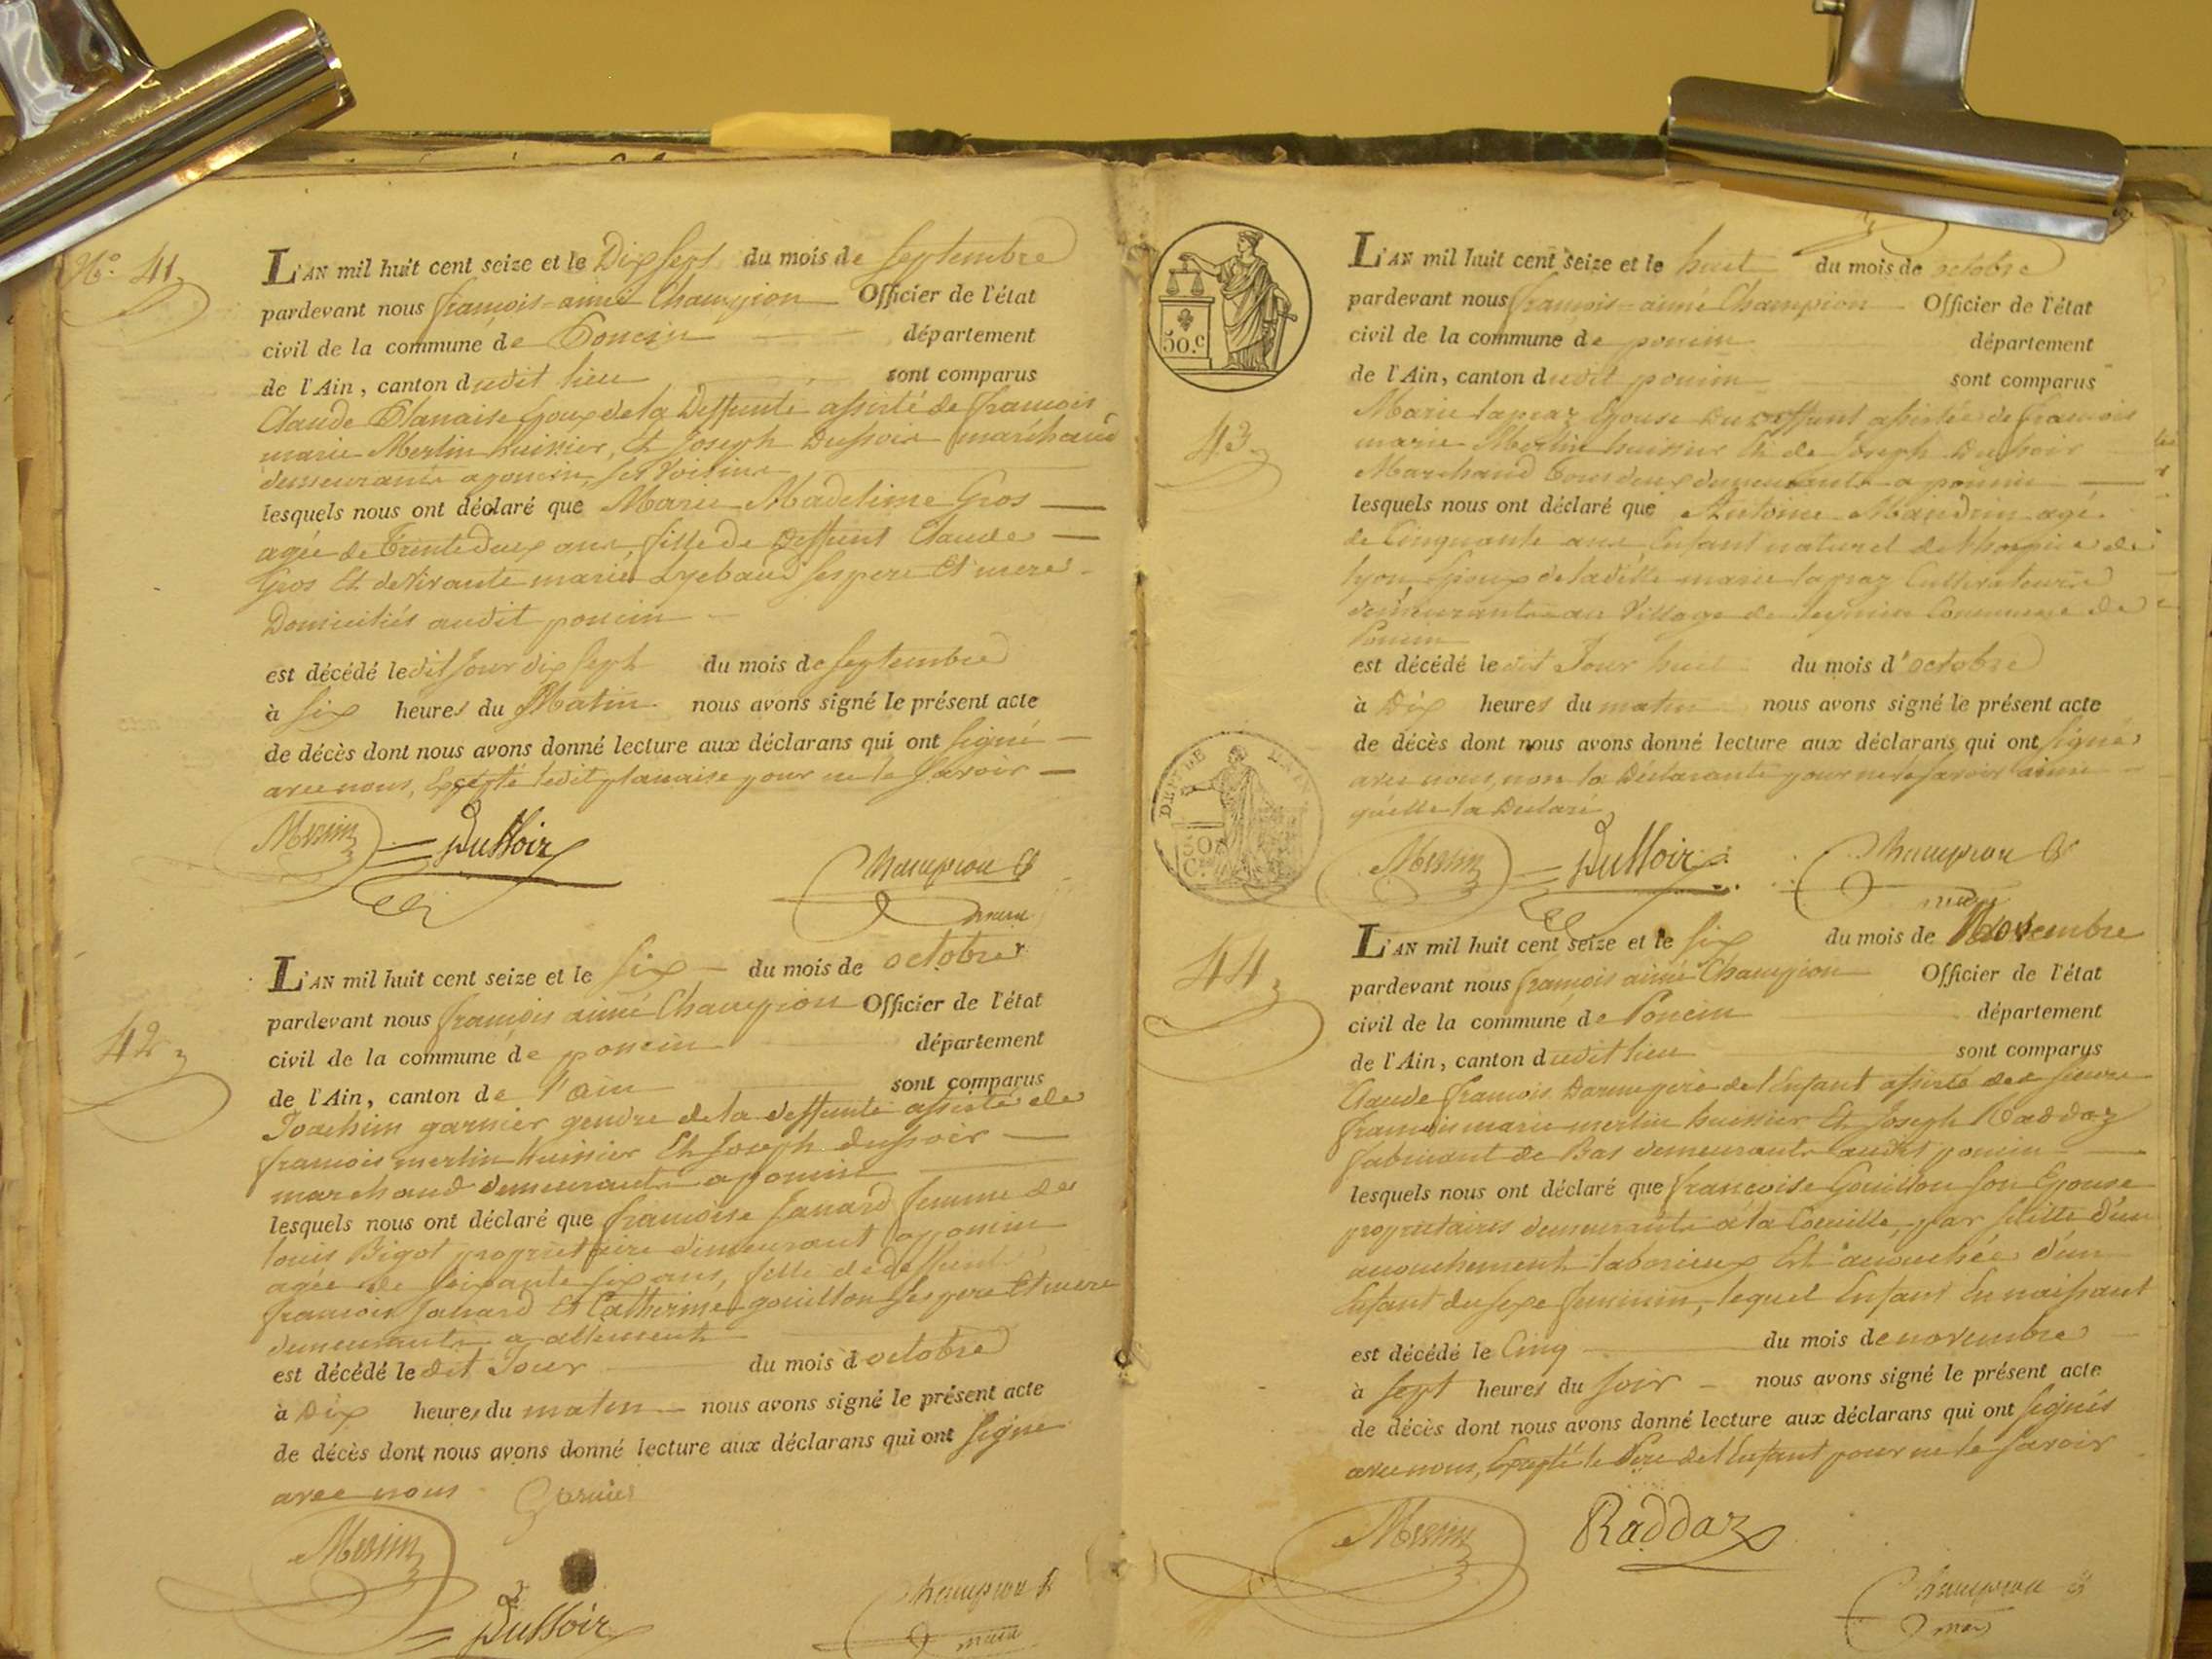 N.° 41
L'AN mil huit cent seize et le Dix sept du mois de septembre
pardevant nous françois-aimé Champion Officier de l'état
civil de la commune de Poncin département
de l'Ain, canton dudit lieu sont comparus
Claude Planaise Epoux de la Deffunte assisté de françois
marie Merlin huissier, Et Joseph Dussoir marchand
demeurants a poncin, ses voisins
lesquels nous ont déclaré que Marie Madeleine Gros
agée de Trente deux ans, fille de Deffunt Claude
Gros Et de vivante marie ses pere Et mere
Domiciliés audit poncin
est décédé le dit jour dix sept du mois de septembre
à six heures du Matin nous avons signé le présent acte
de décès dont nous avons donné lecture aux déclarans qui ont signé
avec nous, Excepté ledit planaise pour ne le savoir
Merlin Dussoir
Champion
maire
42
L'AN mil huit cent seize et le six du mois de octobre
pardevant nous françois aimé Champion Officier de l'état
civil de la commune de poncin département
de l'Ain, canton de l'ain sont comparus
Joachim garnier gendre de la deffunte assisté de
francois merlin huissier Et Joseph dussoir
marchand demeurants a poncin
lesquels nous ont déclaré que francoise Janard femme de
louis Bigot proprietaire demeurant a poncin
agee de soixante six ans, fille de deffunt
francois Janard Et Catherine gouillon ses pere Et mere
demeurants a allement
est décédé le dit Jour du mois d octobre
à Dix heures du matin nous avons signé le présent acte
de décès dont nous avons donné lecture aux déclarans qui ont signé
avec nous Garnier
Merlin
Dussoir
Champion
maire
50.c
43
L'AN mil huit cent seize et le huit du mois de octobre
pardevant nous françois-aimé Champion Officier de l'état
civil de la commune de poncin département
de l'Ain, canton dudit poncin sont comparus
Marie lapraz Epouse du Deffunt assistée de francois
marie Merlin huissier Et de Joseph Dussoir
Marchand tous deux demeurants a poncin
lesquels nous ont déclaré que Antoine Mandrin agé
de Cinquante ans, Enfant naturel de l'hospice de
lyon Epoux de la marie lapraz Cultivateurs
demeurants au Village de Commune de
Poncin
est décédé le dit Jour huit du mois d'octobre
à Dix heures du matin nous avons signé le présent acte
de décès dont nous avons donné lecture aux déclarans qui ont signés
avec nous, non la Déclarante pour ne le savoir ainsi
qu'elle la Declaré
DEPT DE L'AIN
50 C.
Merlin Dussoir Champion
maire
44
L'AN mil huit cent seize et le six du mois de Novembre
pardevant nous françois aimé Champion Officier de l'état
civil de la commune de Poncin département
de l'Ain, canton dudit lieu sont comparus
Claude francois pere de l'Enfant assisté des sieurs
francois marie merlin huissier Et Joseph Raddaz
fabricant de Bas demeurants audit poncin
lesquels nous ont déclaré que francoise Gouillon son Epouse
proprietaires demeurants a la Coeuille, par suitte d'un
accouchement laborieux Est accouchée d'un
Enfant du sexe feminin, lequel Enfant En naissant
est décédé le Cinq du mois de novembre
à sept heures du soir nous avons signé le présent acte
de décès dont nous avons donné lecture aux déclarans qui ont signés
avec nous, Excepté le Pere de l'Enfant pour ne le savoir
Merlin Raddaz
Champion
maire